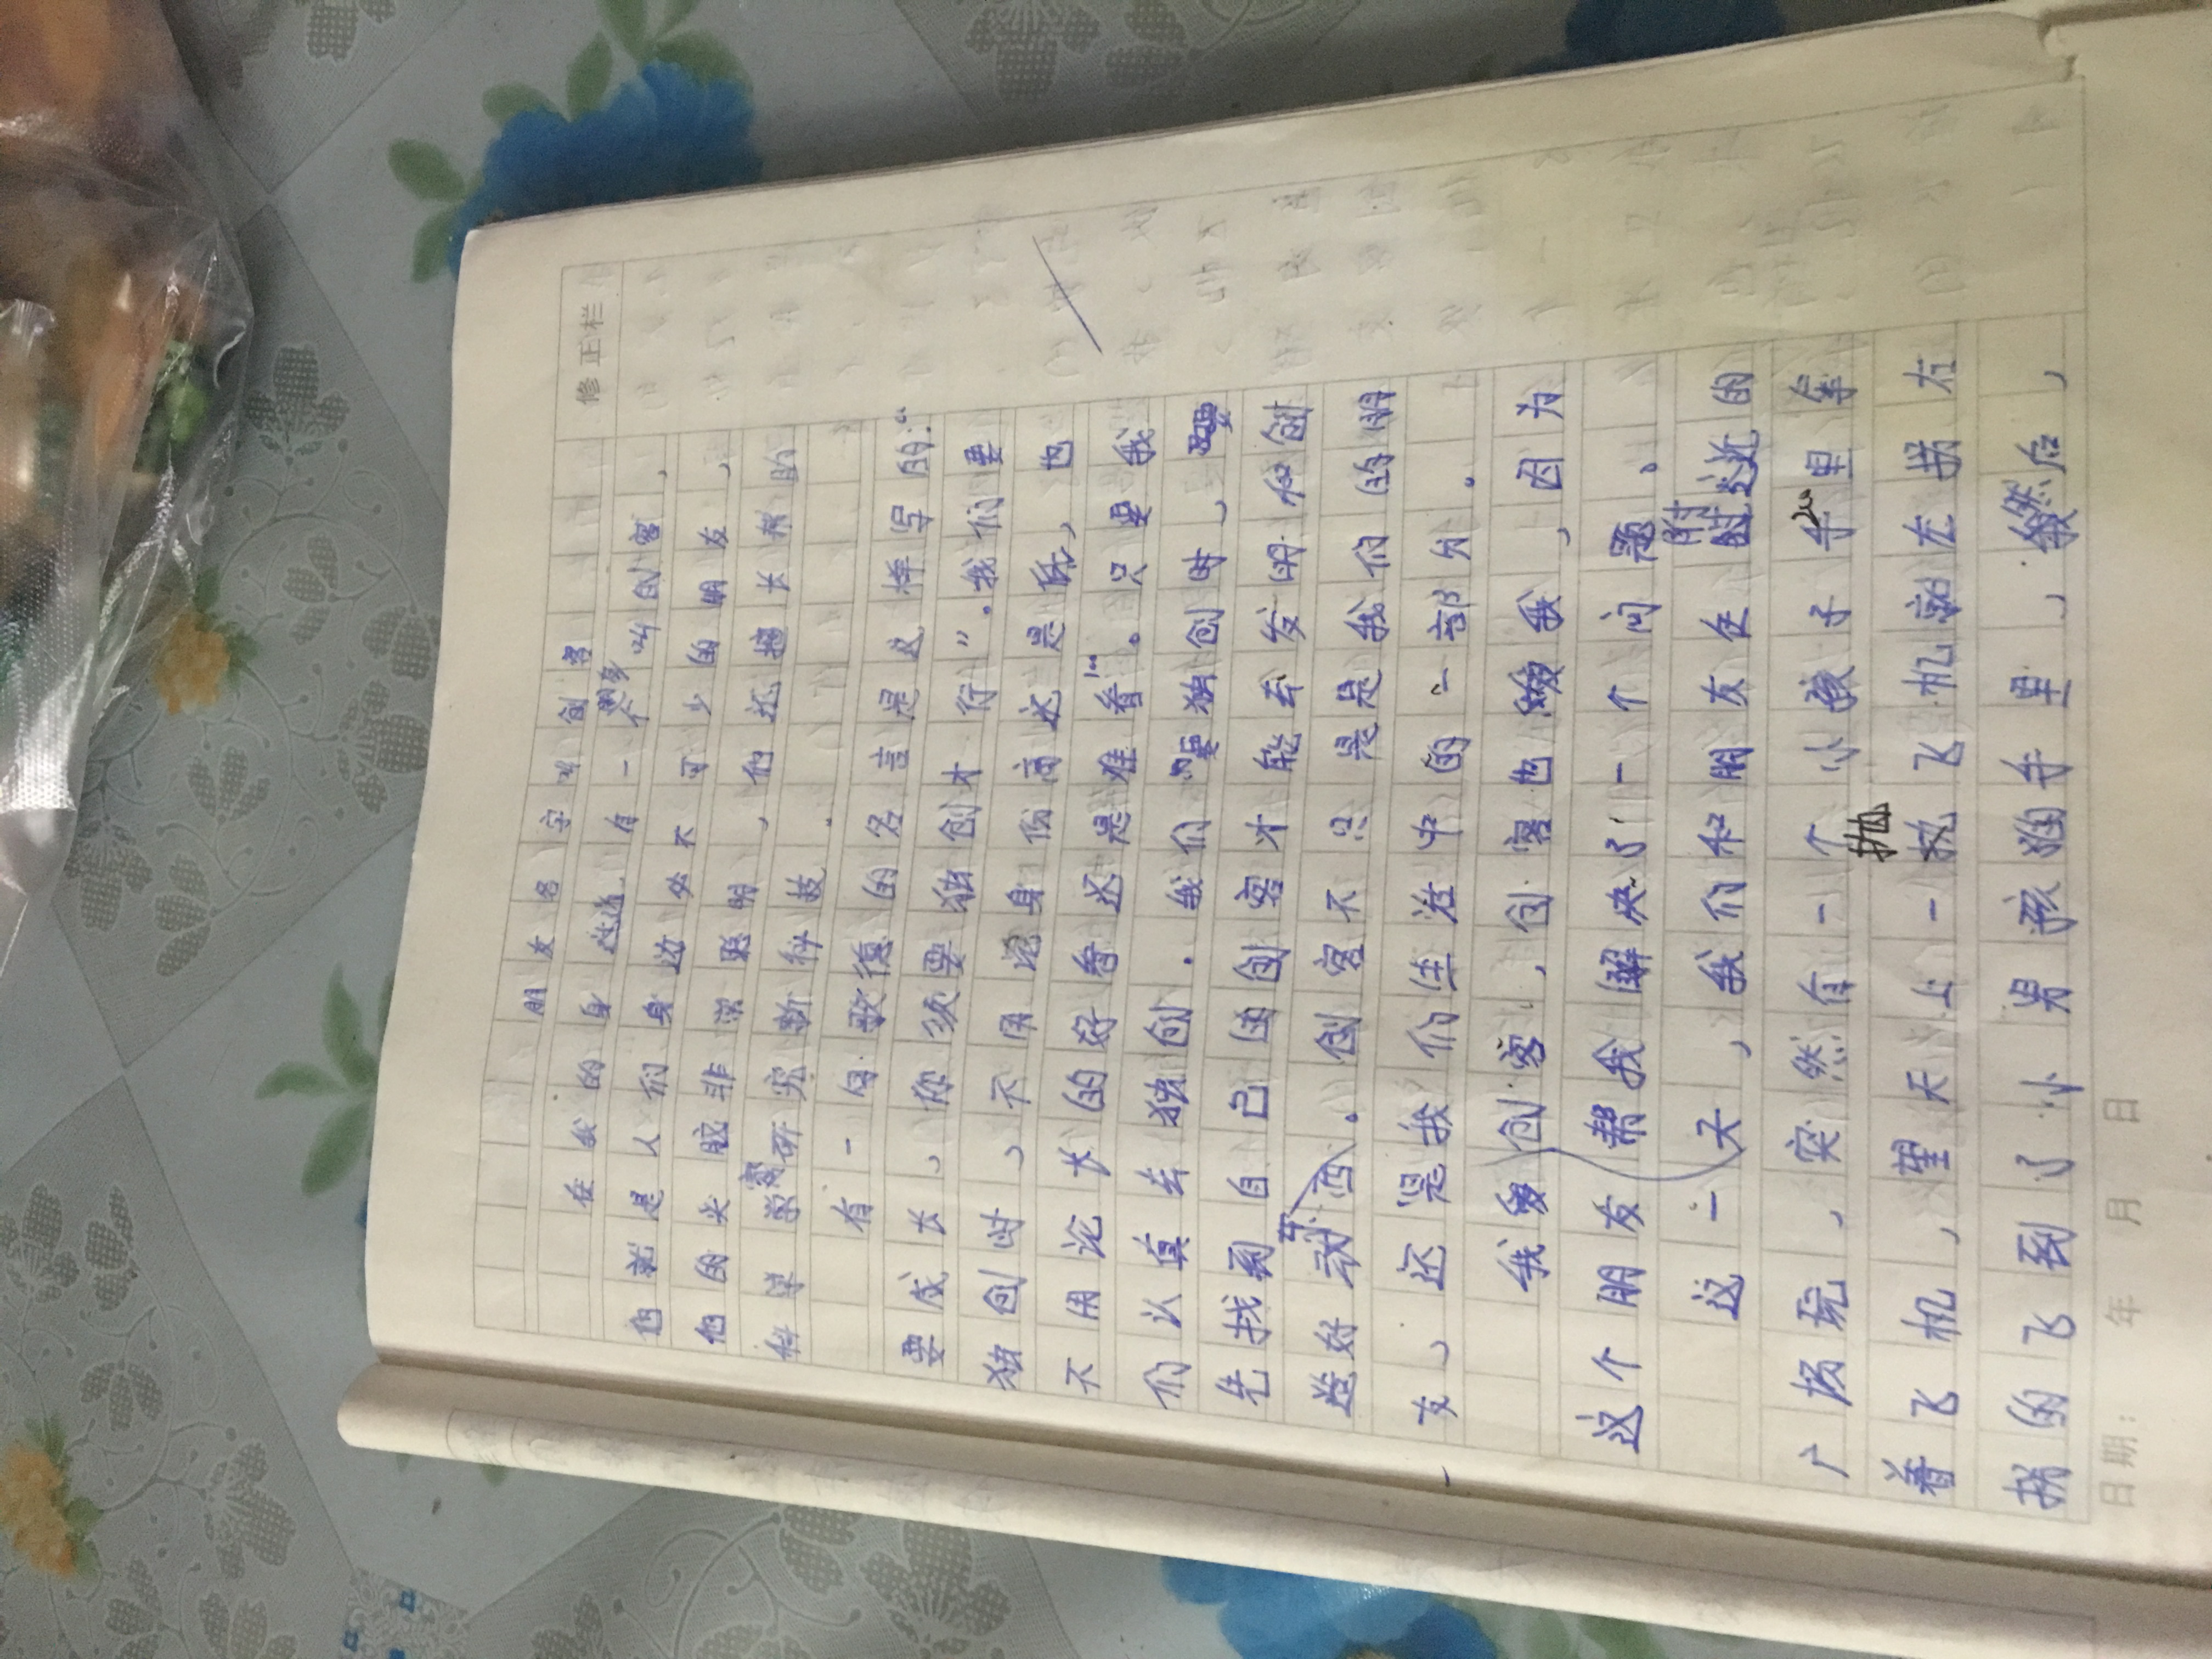 修正栏
朋友名字叫创客
在我的身边,有一个叫创客,
他就是人们身边必不可少的朋友,
他的头脑非常聪明,他还擅长帮助
科学家研究新科技.
有一句歌德的名言是这样写的:“
要成长,你须要独创才行”.我们要
独创时,不用论身份高还是低,也
不用论长的好看还是难看"。只要我
们认真去独创.我们要独创时,要
先找到自己的创客才能去发明和创
造好东西。创客不只是是我们的朋
友,还是我们生活中的一部分.
我爱创客,创客也爱我,因为
这个朋友帮我解决了一个问题。
这一天,我们和朋友在附近的
广场玩,突然有一个小孩子手里拿
着飞机,望天上一抛飞机就左拐右
拐的飞到了小男孩独手里,然后,
日期: 年 月 日